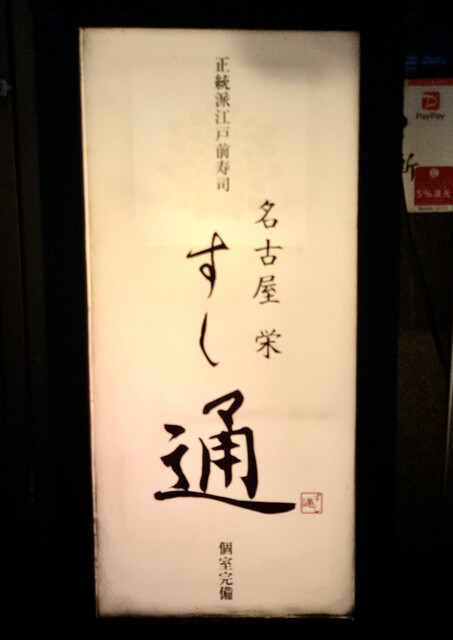 正統派江戸前寿司
名古屋 栄
すし通
個室完備
PayPay
5%還元